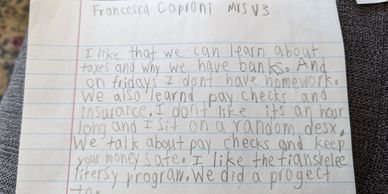 Francesca Caproni MrS V3
I like that we can learn about
taxes and why we have banks. And
on friday I dont have homework.
We also learnd pay checks and
insurance. I don't like its an hour
long and I sit on a random desx.
We talk about pay checks and keep
your money sate. I like the
litersy program. We did a progect
to